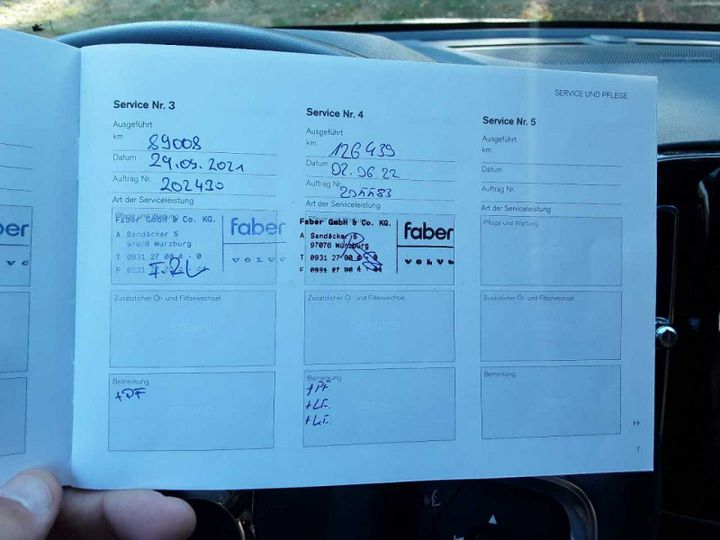 SERVICE UND PFLEGE
Service Nr. 3
Ausgeführt
km 89008
Datum 29.09.2021
Auftrag Nr. 202430
Art der Serviceleistung
Pflege und Wartung
Faber GmbH & Co. KG.
A Sandäcker 5
97076 Würzburg
T 0931 27 00 4 - 0
F 0931 27 00 4
faber
VOLVO
Zusätzlicher Öl- und Filterwechsel
STEMPEL
Bemerkung
+DF
Service Nr. 4
Ausgeführt
km 126439
Datum 02.06.22
Auftrag Nr.
Art der Serviceleistung
Faber GmbH & Co. KG.
A Sandäcker 5
97076 Würzburg
T 0931 27 00 4 - 0
F 0931 27 00 4
faber
VOLVO
Zusätzlicher Öl- und Filterwechsel
Bemerkung
+PF
+LF.
+LF.
Service Nr. 5
Ausgeführt
km
Datum
Auftrag Nr.
Art der Serviceleistung
Pflege und Wartung
Zusätzlicher Öl- und Filterwechsel
Bemerkung
7